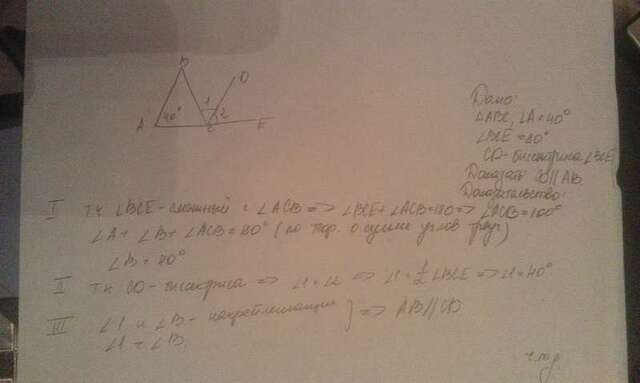 B
D
40°
1
2
A
C
E
Дано:
∠ABC, ∠A=40°
∠BCE=80°
CD-биссектриса ∠BCE
Доказать: CD∥AB
Доказательство:
I т.к ∠BCE-смежный с ∠ACB => ∠BCE+∠ACB=180 => ∠ACB=100°
∠A+∠B+∠ACB=180° (по теор. о сумме углов треуг)
∠B=40°
II т.к CD-биссектриса => ∠1=∠2 => ∠1=1/2∠BCE => ∠1=40°
III ∠1 и ∠B - накрестлежащие } => AB∥CD
∠1=∠B
ч.т.д